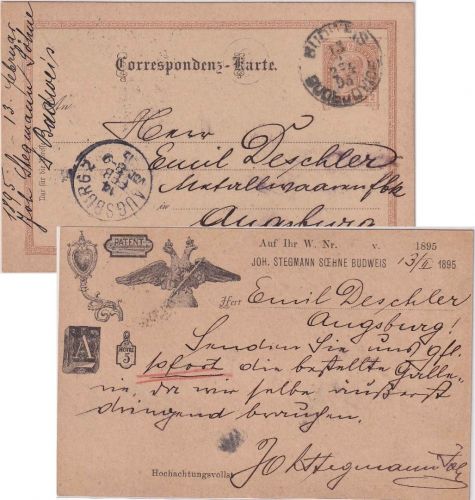 1895 13. Februar
Joh. Stegmann Söhne
Budweis
Correspondenz-Karte.
An
BUDWEIS
13
BUDĚJOVICE
Herrn
Emil Deschler
Metallwaarenfbk
in
Augsburg
AUGSBURG 2.
14
FEB
PATENT
A
HOTEL
5
Auf Ihr W. Nr. v. 1895
JOH. STEGMANN SŒHNE BUDWEIS 13/II 1895
Herr Emil Deschler
Augsburg!
Senden Sie uns gfl.
sofort die bestellte Galle-
rie, da wir selbe äußerst
dringend brauchen.
Hochachtungsvollst
Joh Stegmann Söhne